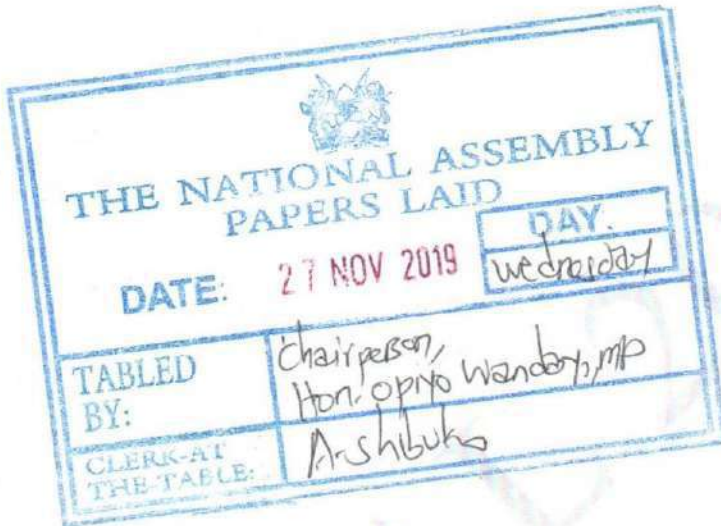 THE NATIONAL ASSEMBLY
PAPERS LAID
DATE: 27 NOV 2019
DAY.
Wednesday
TABLED
BY:
Chairperson,
Hon. Opiyo Wandayi, MP
CLERK-AT
THE-TABLE:
A. Shibuko